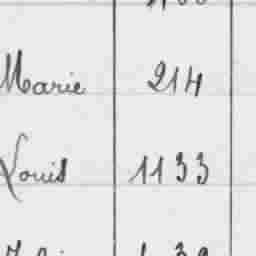 Marie 214
Louis 1133